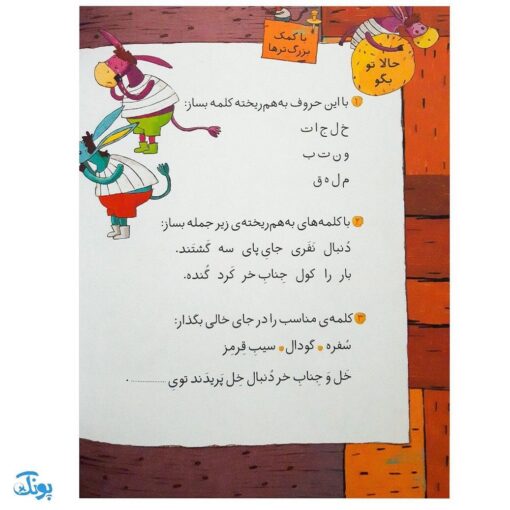 با کمک
بزرگ‌ترها
حالا تو
بگو
۱ با این حروف به‌هم‌ریخته کلمه بساز:
خ ل ج ا ت
و ن ت ب
م ل ه ق
۲ با کلمه‌های به‌هم‌ریخته‌ی زیر جمله بساز:
دُنبال نَفَری جایِ پای سه گَشتَند.
بار را کول جِنابِ خر کَرد گُنده.
۳ کلمه‌ی مناسب را در جای خالی بگذار:
سُفره • گودال • سیبِ قِرمز
خَل وَ جِنابِ خر دُنبال خِل پَریدَند تویِ ............ .
پونک